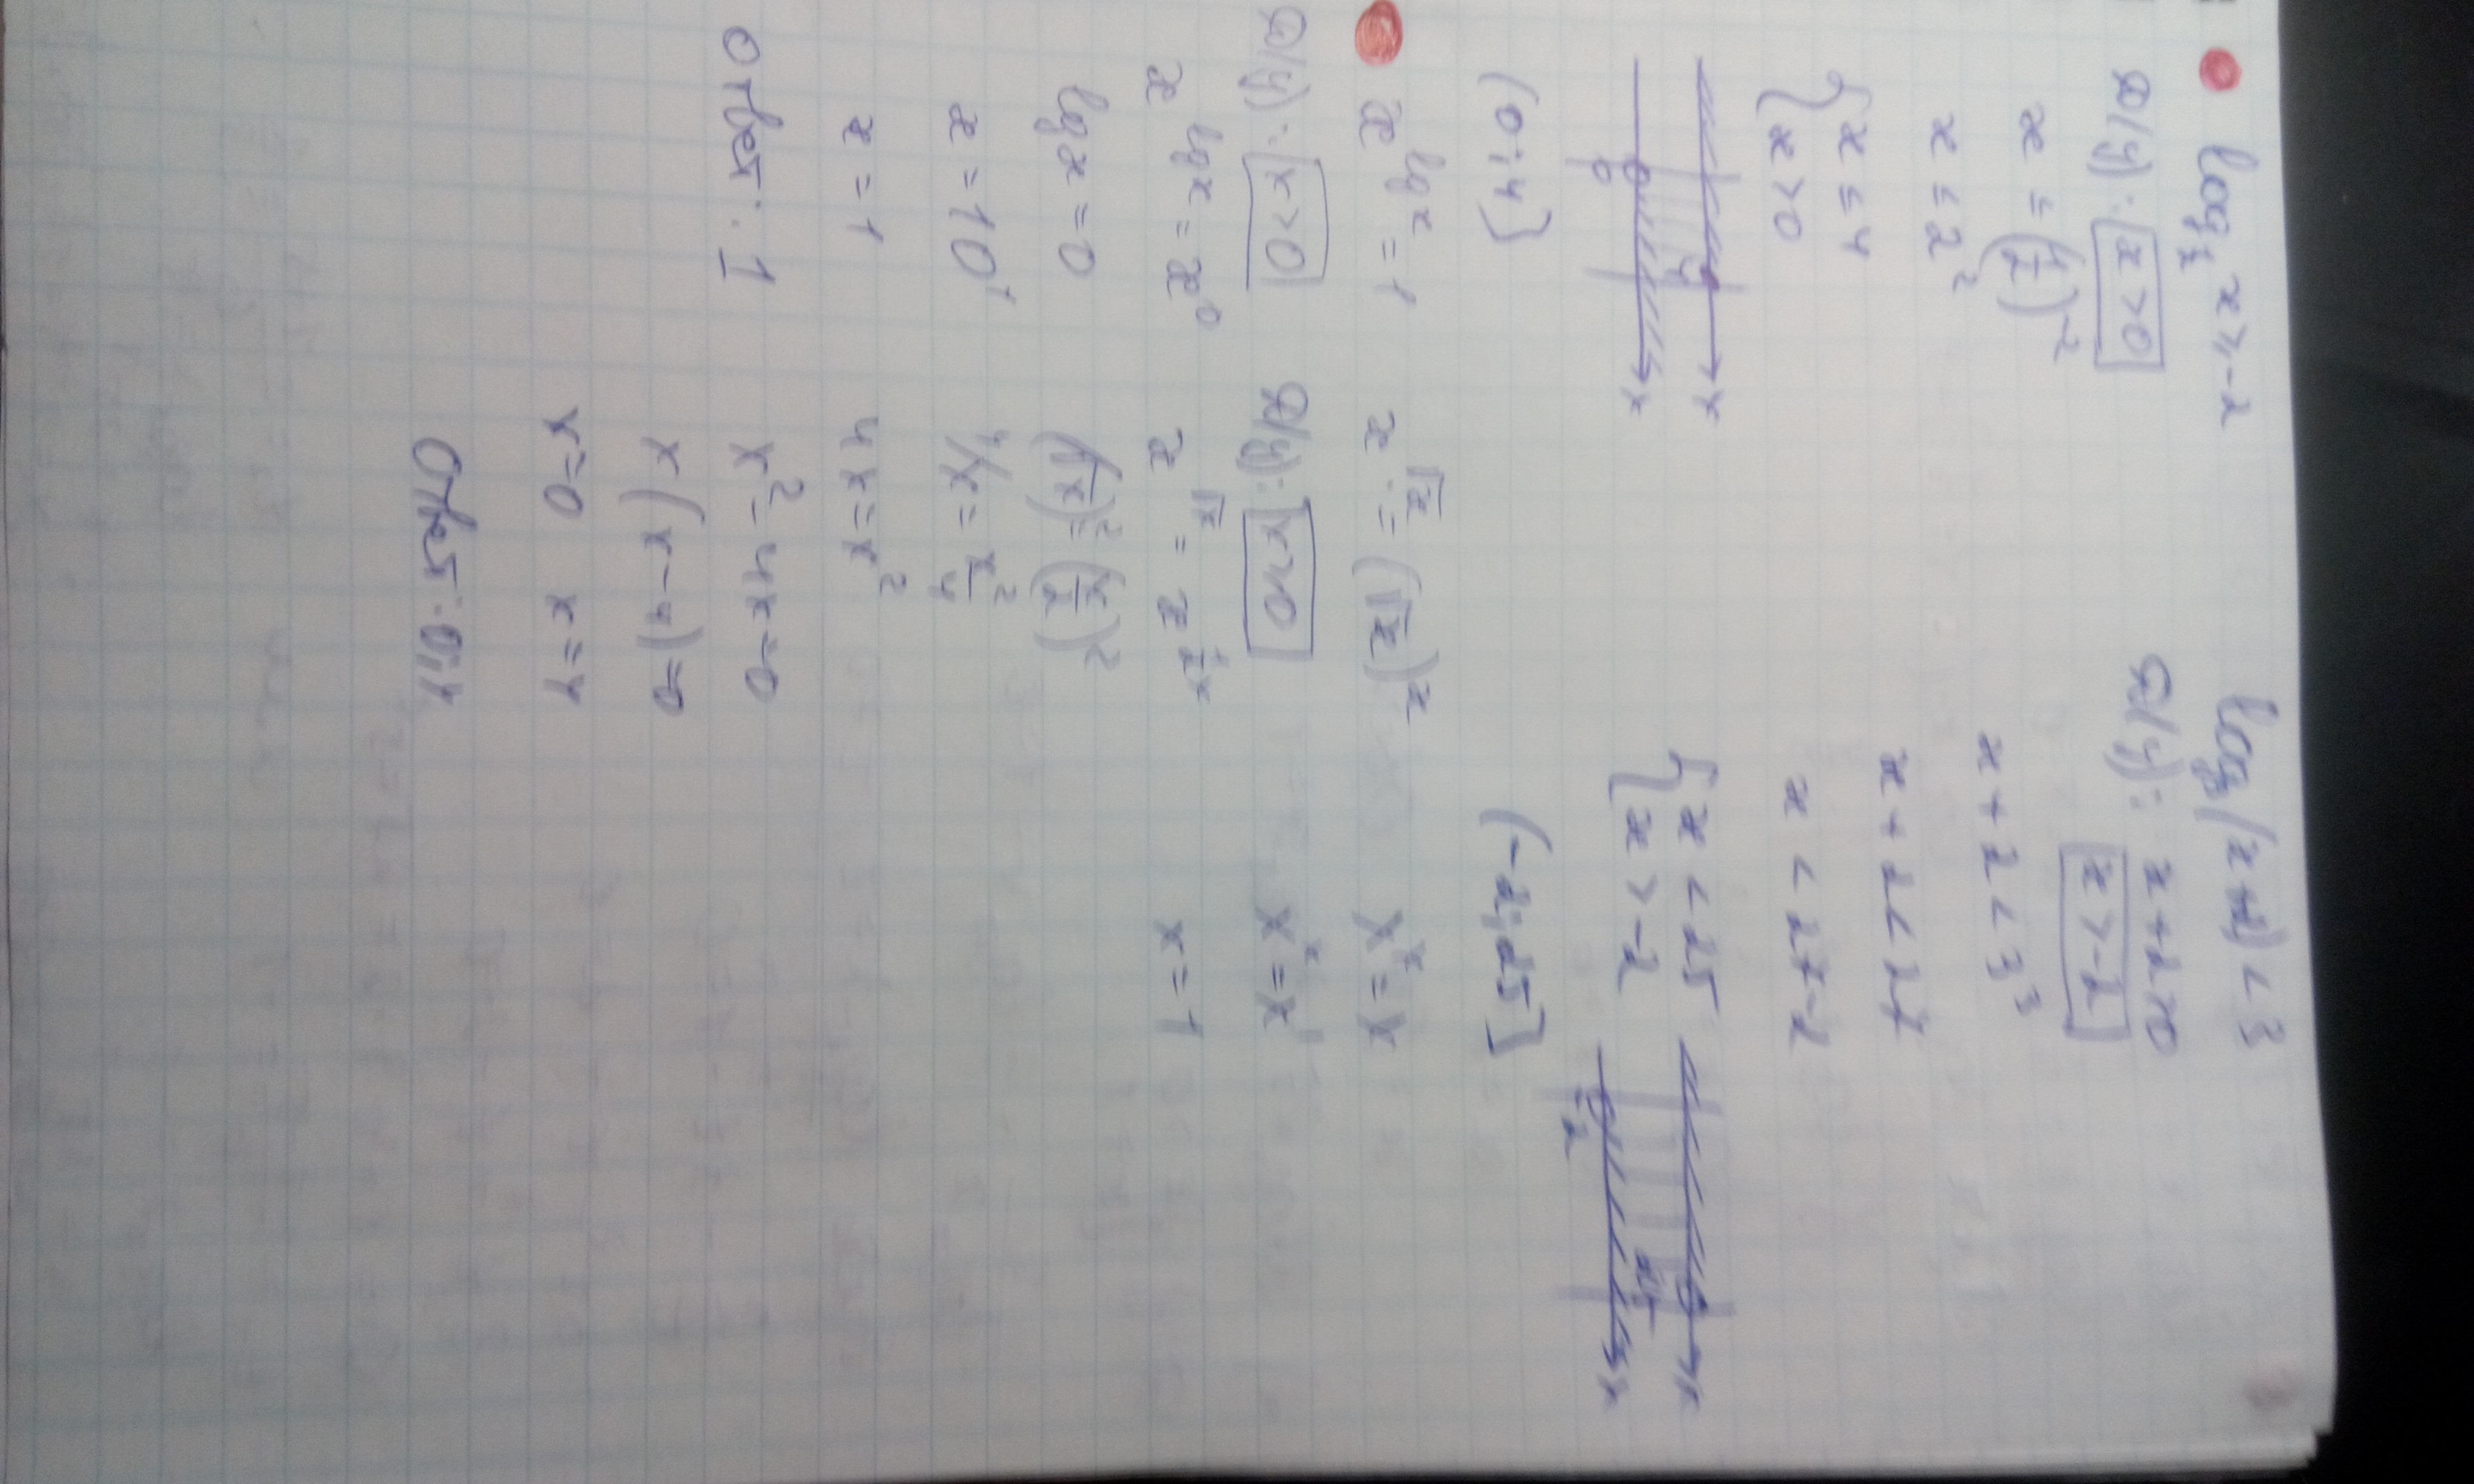 log_{1/2} x ⩾ -2
D(y): x > 0
x ≤ (1/2)^{-2}
x ≤ 2^2
{ x ≤ 4
{ x > 0
0 4 x x
(0; 4]
log_3 (x+2) < 3
D(y): x + 2 > 0
x > -2
x + 2 < 3^3
x + 2 < 27
x < 27 - 2
{ x < 25
{ x > -2
-2 25 x x
(-2; 25]
x^{lg x} = 1
D(y): x > 0
x^{lg x} = x^0
lg x = 0
x = 10^1
x = 1
Ответ: 1
x^{√x} = (√x)^x
D(y): x > 0
x^{√x} = x^{1/2 x}
(√x)^2 = (x/2)^2
x = x^2/4
4x = x^2
x^2 - 4x = 0
x(x-4) = 0
x = 0 x = 4
Ответ: 0; 4
x^x = x
x^x = x^1
x = 1